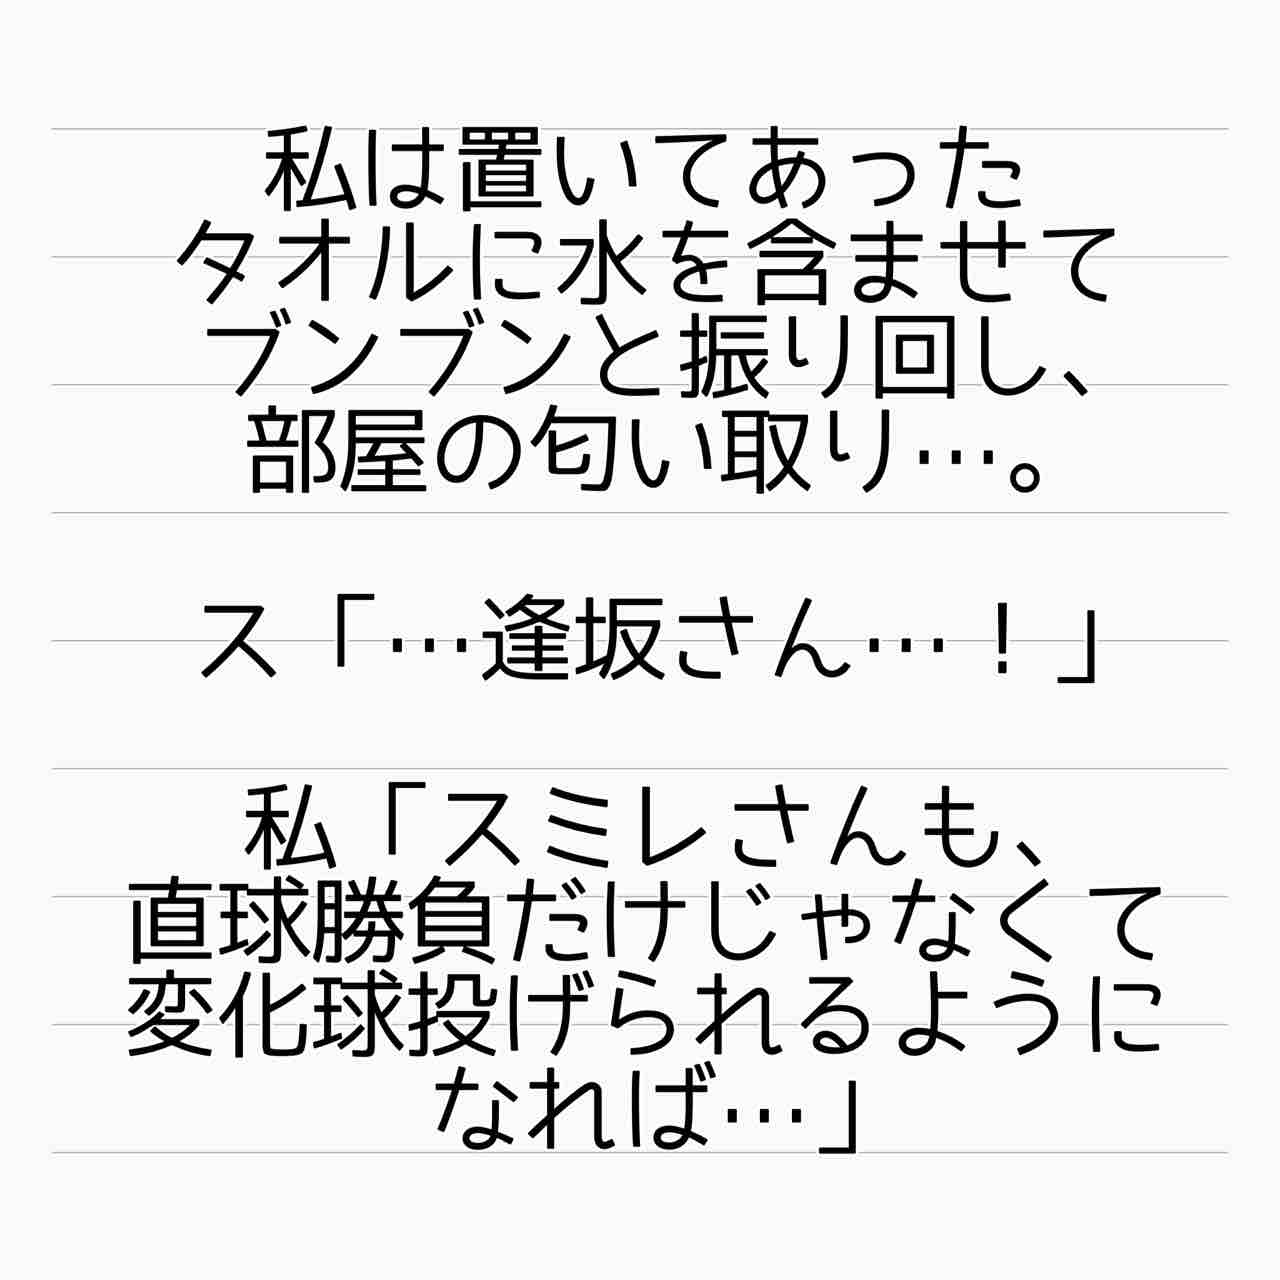 私は置いてあった
タオルに水を含ませて
ブンブンと振り回し、
部屋の匂い取り…。
ス「…逢坂さん…！」
私「スミレさんも、
直球勝負だけじゃなくて
変化球投げられるように
なれば…」